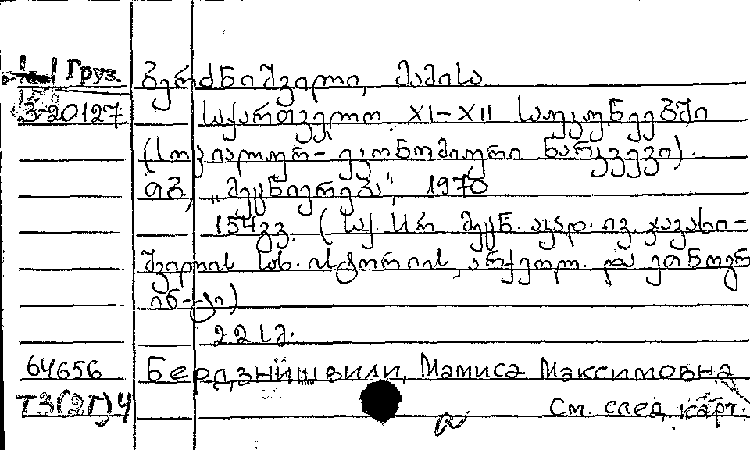 Груз. ბერძნიშვილი, მამისა
3-20127 საქართველო XI-XII საუკუნეებში
(სოციალურ-ეკონომიური ნარკვევი).
თბ., „მეცნიერება", 1970
154გვ. (საქ. სსრ მეცნ. აკად. ივ. ჯავახი-
შვილის სახ. ისტორიის, არქეოლ. და ეთნოგრ.
ინ-ტი)
22 სმ.
64656 Бердзнишвили, Мамиса Максимовна
Т3(2Г)4 См. след. карт.